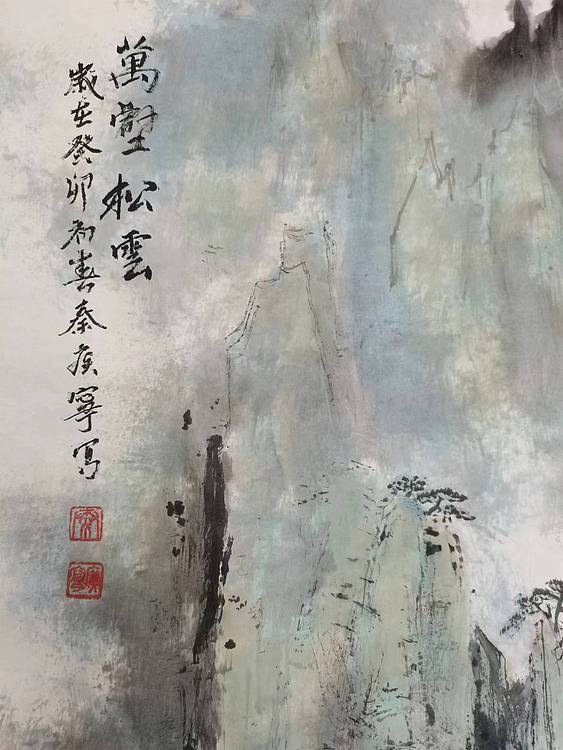 萬壑松雲
歲在癸卯初春秦寧寫